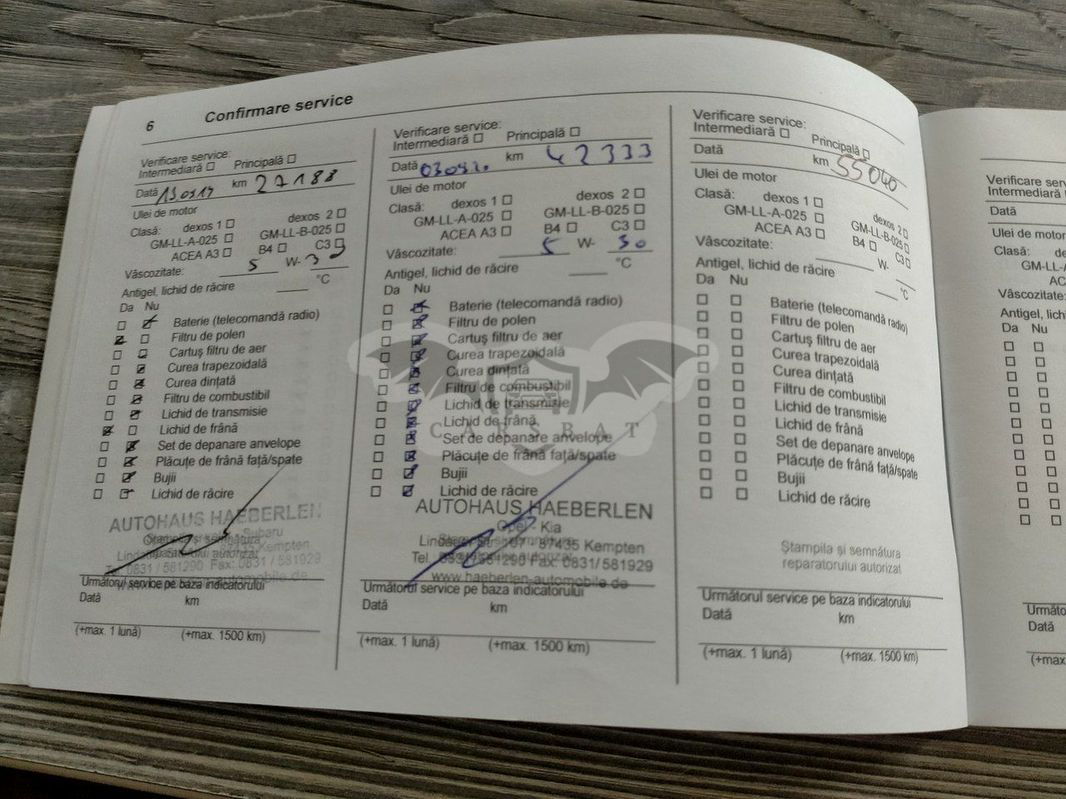 6
Confirmare service
Verificare service:
Intermediară Principală
Dată 13.09.19 km 27188
Ulei de motor
Clasă: dexos 1 dexos 2
GM-LL-A-025 GM-LL-B-025
ACEA A3 B4 C3
Vâscozitate: 5 W-
Antigel, lichid de răcire °C
Da Nu
Baterie (telecomandă radio)
Filtru de polen
Cartuş filtru de aer
Curea trapezoidală
Curea dinţată
Filtru de combustibil
Lichid de transmisie
Lichid de frână
Set de depanare anvelope
Plăcuţe de frână faţă/spate
Bujii
Lichid de răcire
AUTOHAUS HAEBERLEN
Ştampila şi semnătura
Subaru
reparatorului autorizat
Kempten
Tel. 0831 / 581290 Fax: 0831 / 581929
Următorul service pe baza indicatorului
Dată km
(+max. 1 lună) (+max. 1500 km)
Verificare service:
Intermediară Principală
Dată km 42333
Ulei de motor
Clasă: dexos 1 dexos 2
GM-LL-A-025 GM-LL-B-025
ACEA A3 B4 C3
Vâscozitate: 5 W- 30
Antigel, lichid de răcire °C
Da Nu
Baterie (telecomandă radio)
Filtru de polen
Cartuş filtru de aer
Curea trapezoidală
Curea dinţată
Filtru de combustibil
Lichid de transmisie
Lichid de frână
Set de depanare anvelope
Plăcuţe de frână faţă/spate
Bujii
Lichid de răcire
CARSBAT
AUTOHAUS HAEBERLEN
Opel - Kia
87435 Kempten
Tel. 0831/581290 Fax: 0831/581929
www.haeberlen-automobile.de
Următorul service pe baza indicatorului
Dată km
(+max. 1 lună) (+max. 1500 km)
Verificare service:
Intermediară Principală
Dată km 55040
Ulei de motor
Clasă: dexos 1 dexos 2
GM-LL-A-025 GM-LL-B-025
ACEA A3 B4 C3
Vâscozitate: W-
Antigel, lichid de răcire °C
Da Nu
Baterie (telecomandă radio)
Filtru de polen
Cartuş filtru de aer
Curea trapezoidală
Curea dinţată
Filtru de combustibil
Lichid de transmisie
Lichid de frână
Set de depanare anvelope
Plăcuţe de frână faţă/spate
Bujii
Lichid de răcire
Ştampila şi semnătura
reparatorului autorizat
Următorul service pe baza indicatorului
Dată km
(+max. 1 lună) (+max. 1500 km)
Verificare serv
Intermediară
Dată
Ulei de motor
Clasă: de
GM-LL-A
AC
Vâscozitate:
Antigel, lich
Da Nu
Următo
Dată
(+max